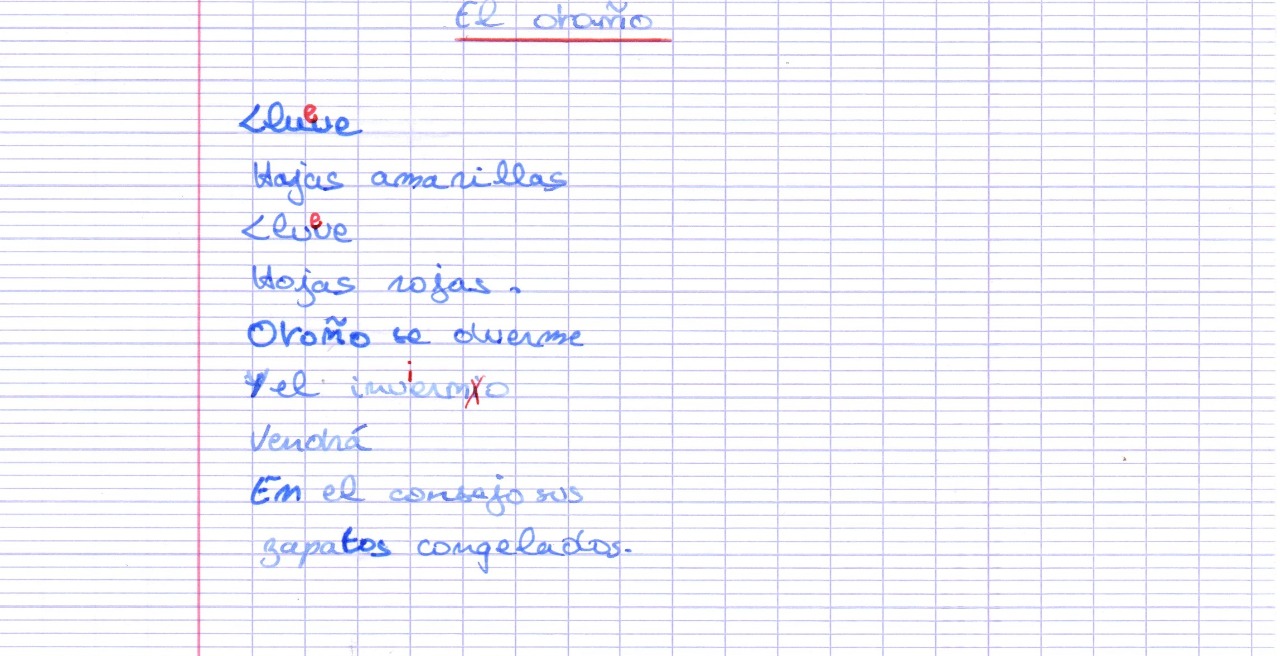 El otoño
Llueve
Hojas amarillas
Llueve
Hojas rojas.
Otoño se duerme
Y el invierno
Vendrá
En el consejo sus
zapatos congelados.